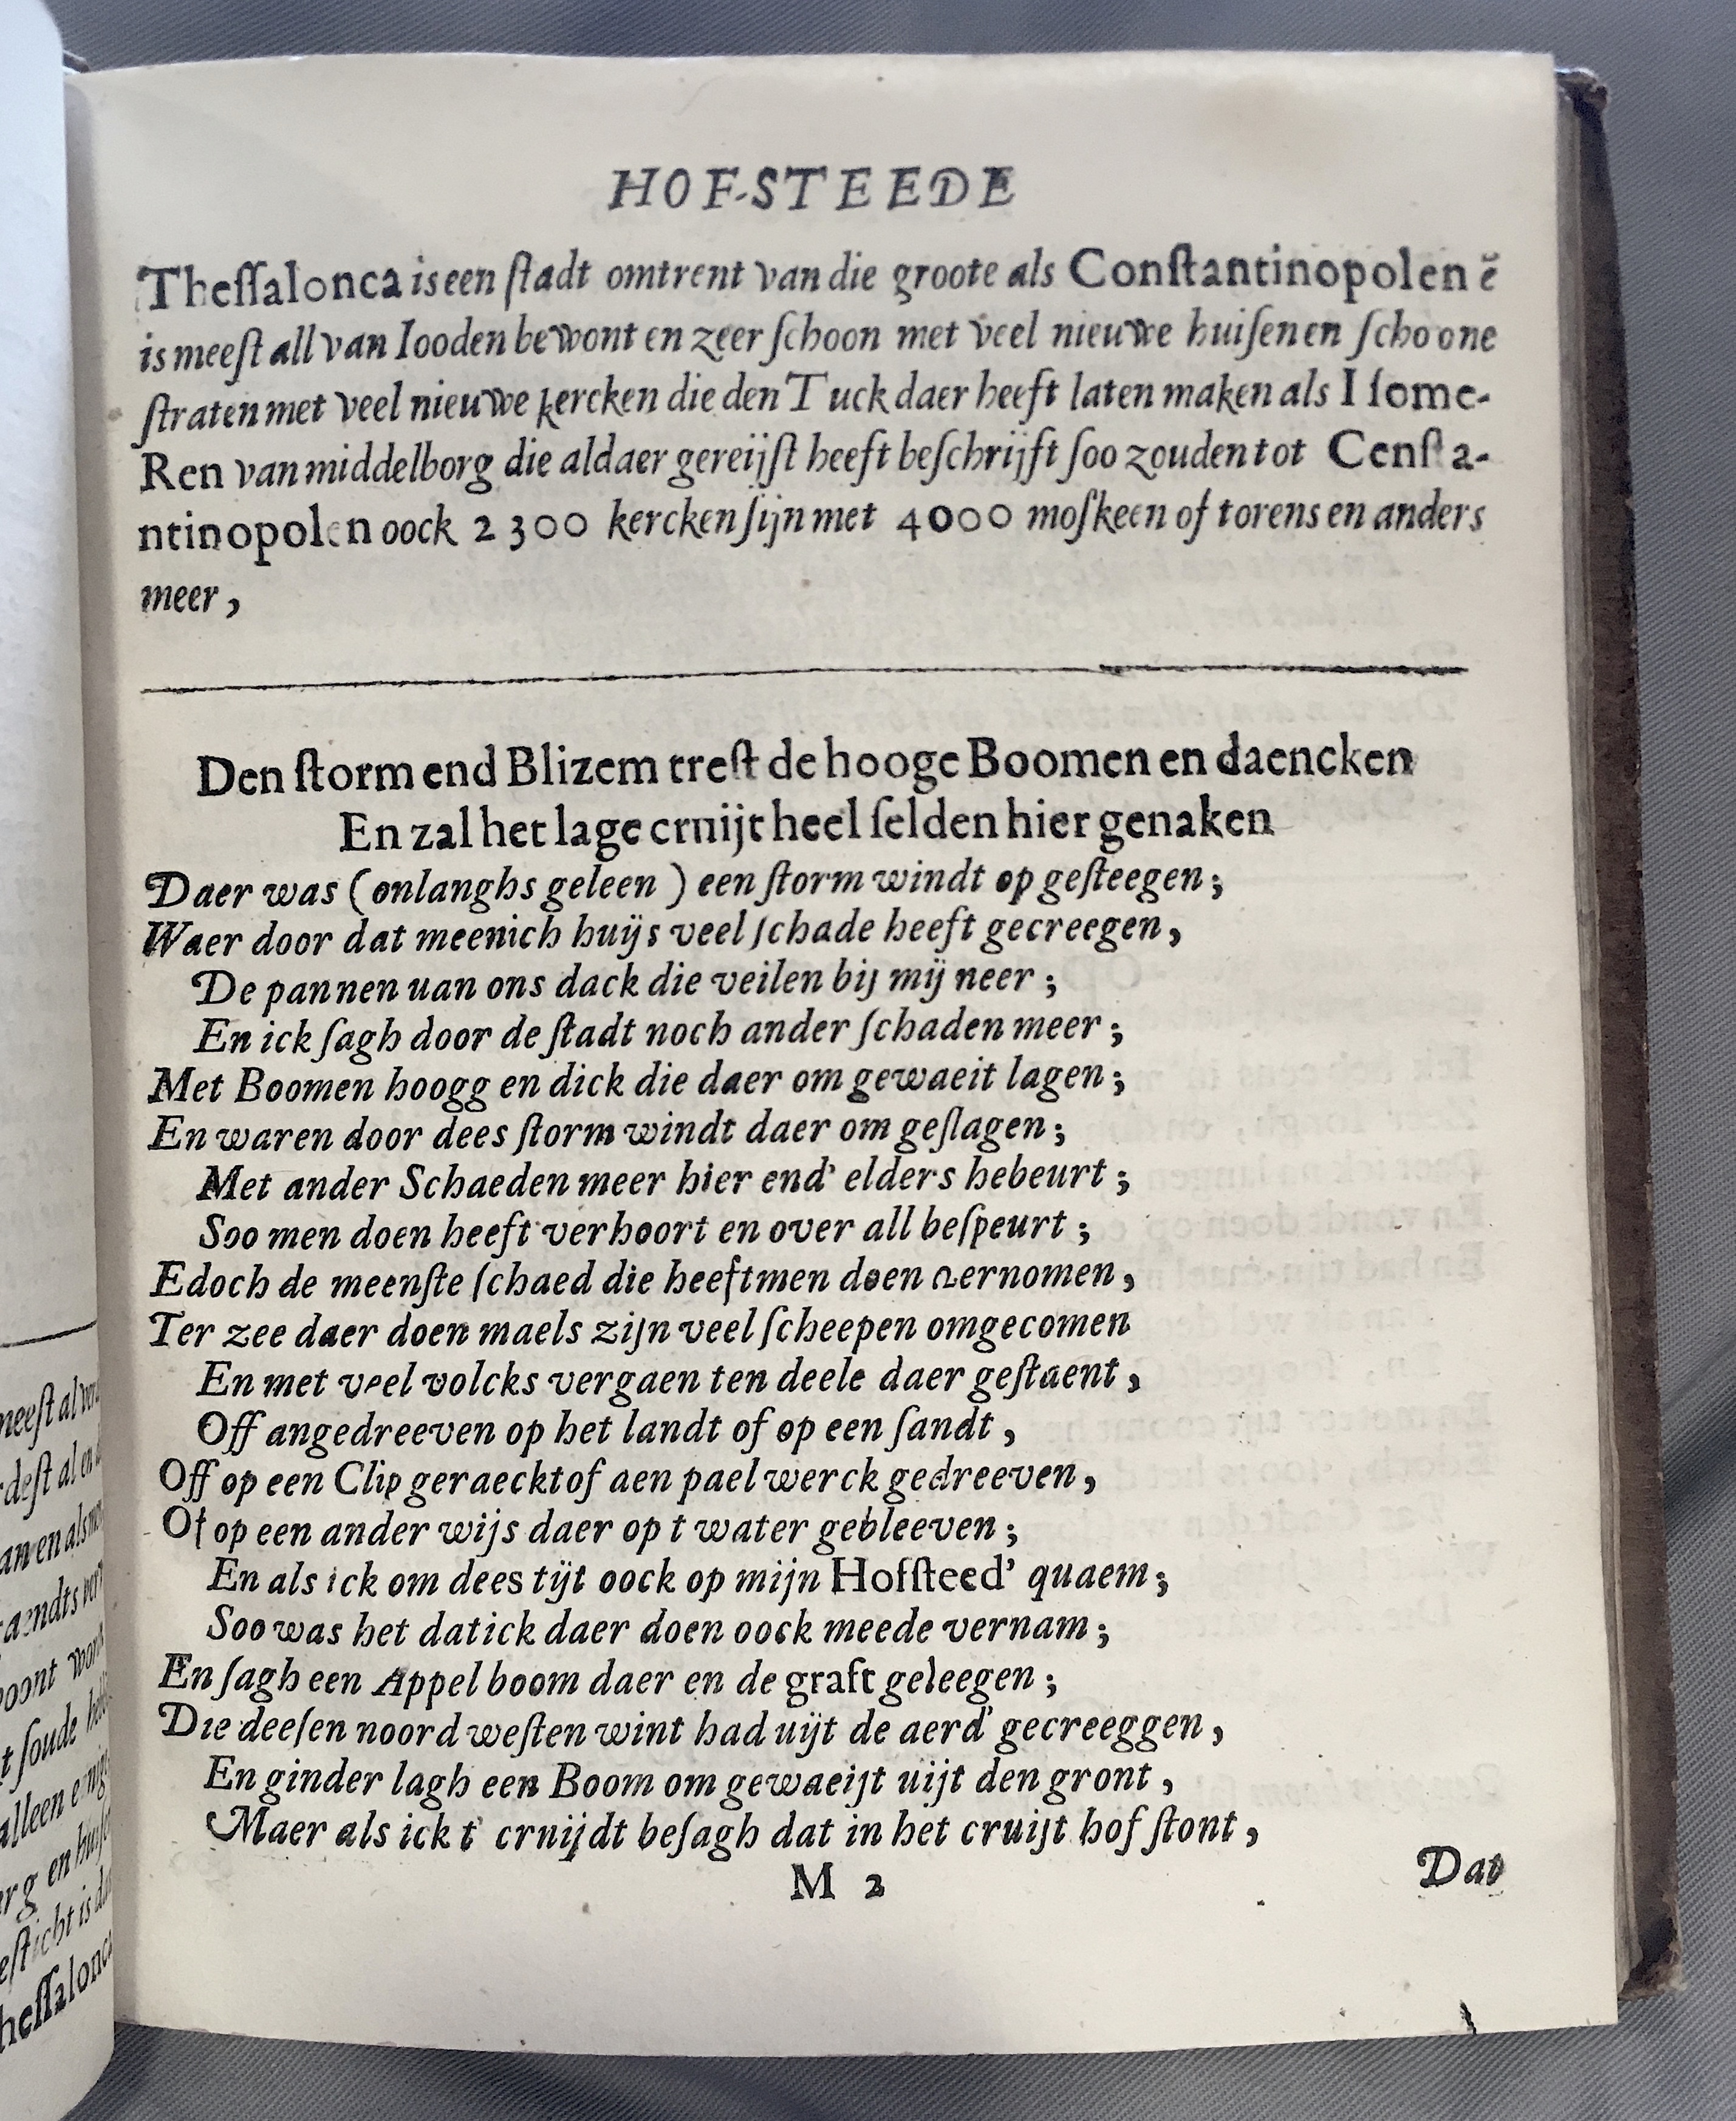 HOF-STEEDE
Theſſalonca is een ſtadt omtrent van die groote als Conſtantinopolen ē
is meeſt all van Iooden bewont en zeer ſchoon met veel nieuwe huiſen en ſchoone
ſtraten met veel nieuwe kercken die den Tuck daer heeft laten maken als I ſome-
Ren van middelborg die aldaer gereijſt heeft beſchrijft ſoo zouden tot Cenſta-
ntinopolen oock 2300 kercken ſijn met 4000 moſkeen of torens en anders
meer,
Den ſtorm end Blizem treſt de hooge Boomen en daencken
En zal het lage crnijt heel ſelden hier genaken
Daer was (onlanghs geleen) een ſtorm windt op geſteegen;
Waer door dat meenich huijs veel ſchade heeft gecreegen,
De pannen uan ons dack die veilen bij mij neer;
En ick ſagh door de ſtadt noch ander ſchaden meer;
Met Boomen hoogg en dick die daer om gewaeit lagen;
En waren door dees ſtorm windt daer om geſlagen;
Met ander Schaeden meer hier end' elders hebeurt;
Soo men doen heeft verhoort en over all beſpeurt;
Edoch de meenſte ſchaed die heeftmen doen vernomen,
Ter zee daer doen maels zijn veel ſcheepen omgecomen
En met veel volcks vergaen ten deele daer geſtaent,
Off angedreeven op het landt of op een ſandt,
Off op een Clip geraecktof aen pael werck gedreeven,
Of op een ander wijs daer op t water gebleeven;
En als ick om dees tijt oock op mijn Hofſteed' quaem;
Soo was het datick daer doen oock meede vernam;
En ſagh een Appel boom daer en de graft geleegen;
Die deeſen noord weſten wint had uijt de aerd' gecreeggen,
En ginder lagh een Boom om gewaeijt uijt den gront,
Maer als ick t' crnijdt beſagh dat in het cruijt hof ſtont,
M 2
Dat
meeſt al
deſt al en
an en als
aendts
oont
t ſoude
alleen
erg en
eſticht is
heſſalonc